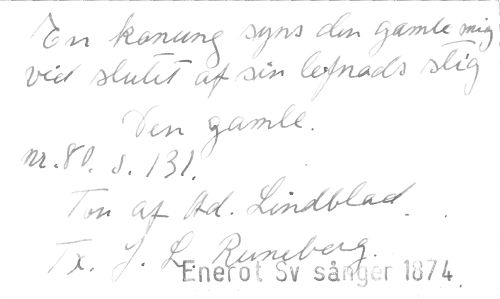 En konung syns den gamle mig
vid slutet af sin lefnads stig
Den gamle.
nr. 80. s. 131.
Ton af Ad. Lindblad.
Tx. J. L. Runeberg.
Enerot Sv sånger 1874.